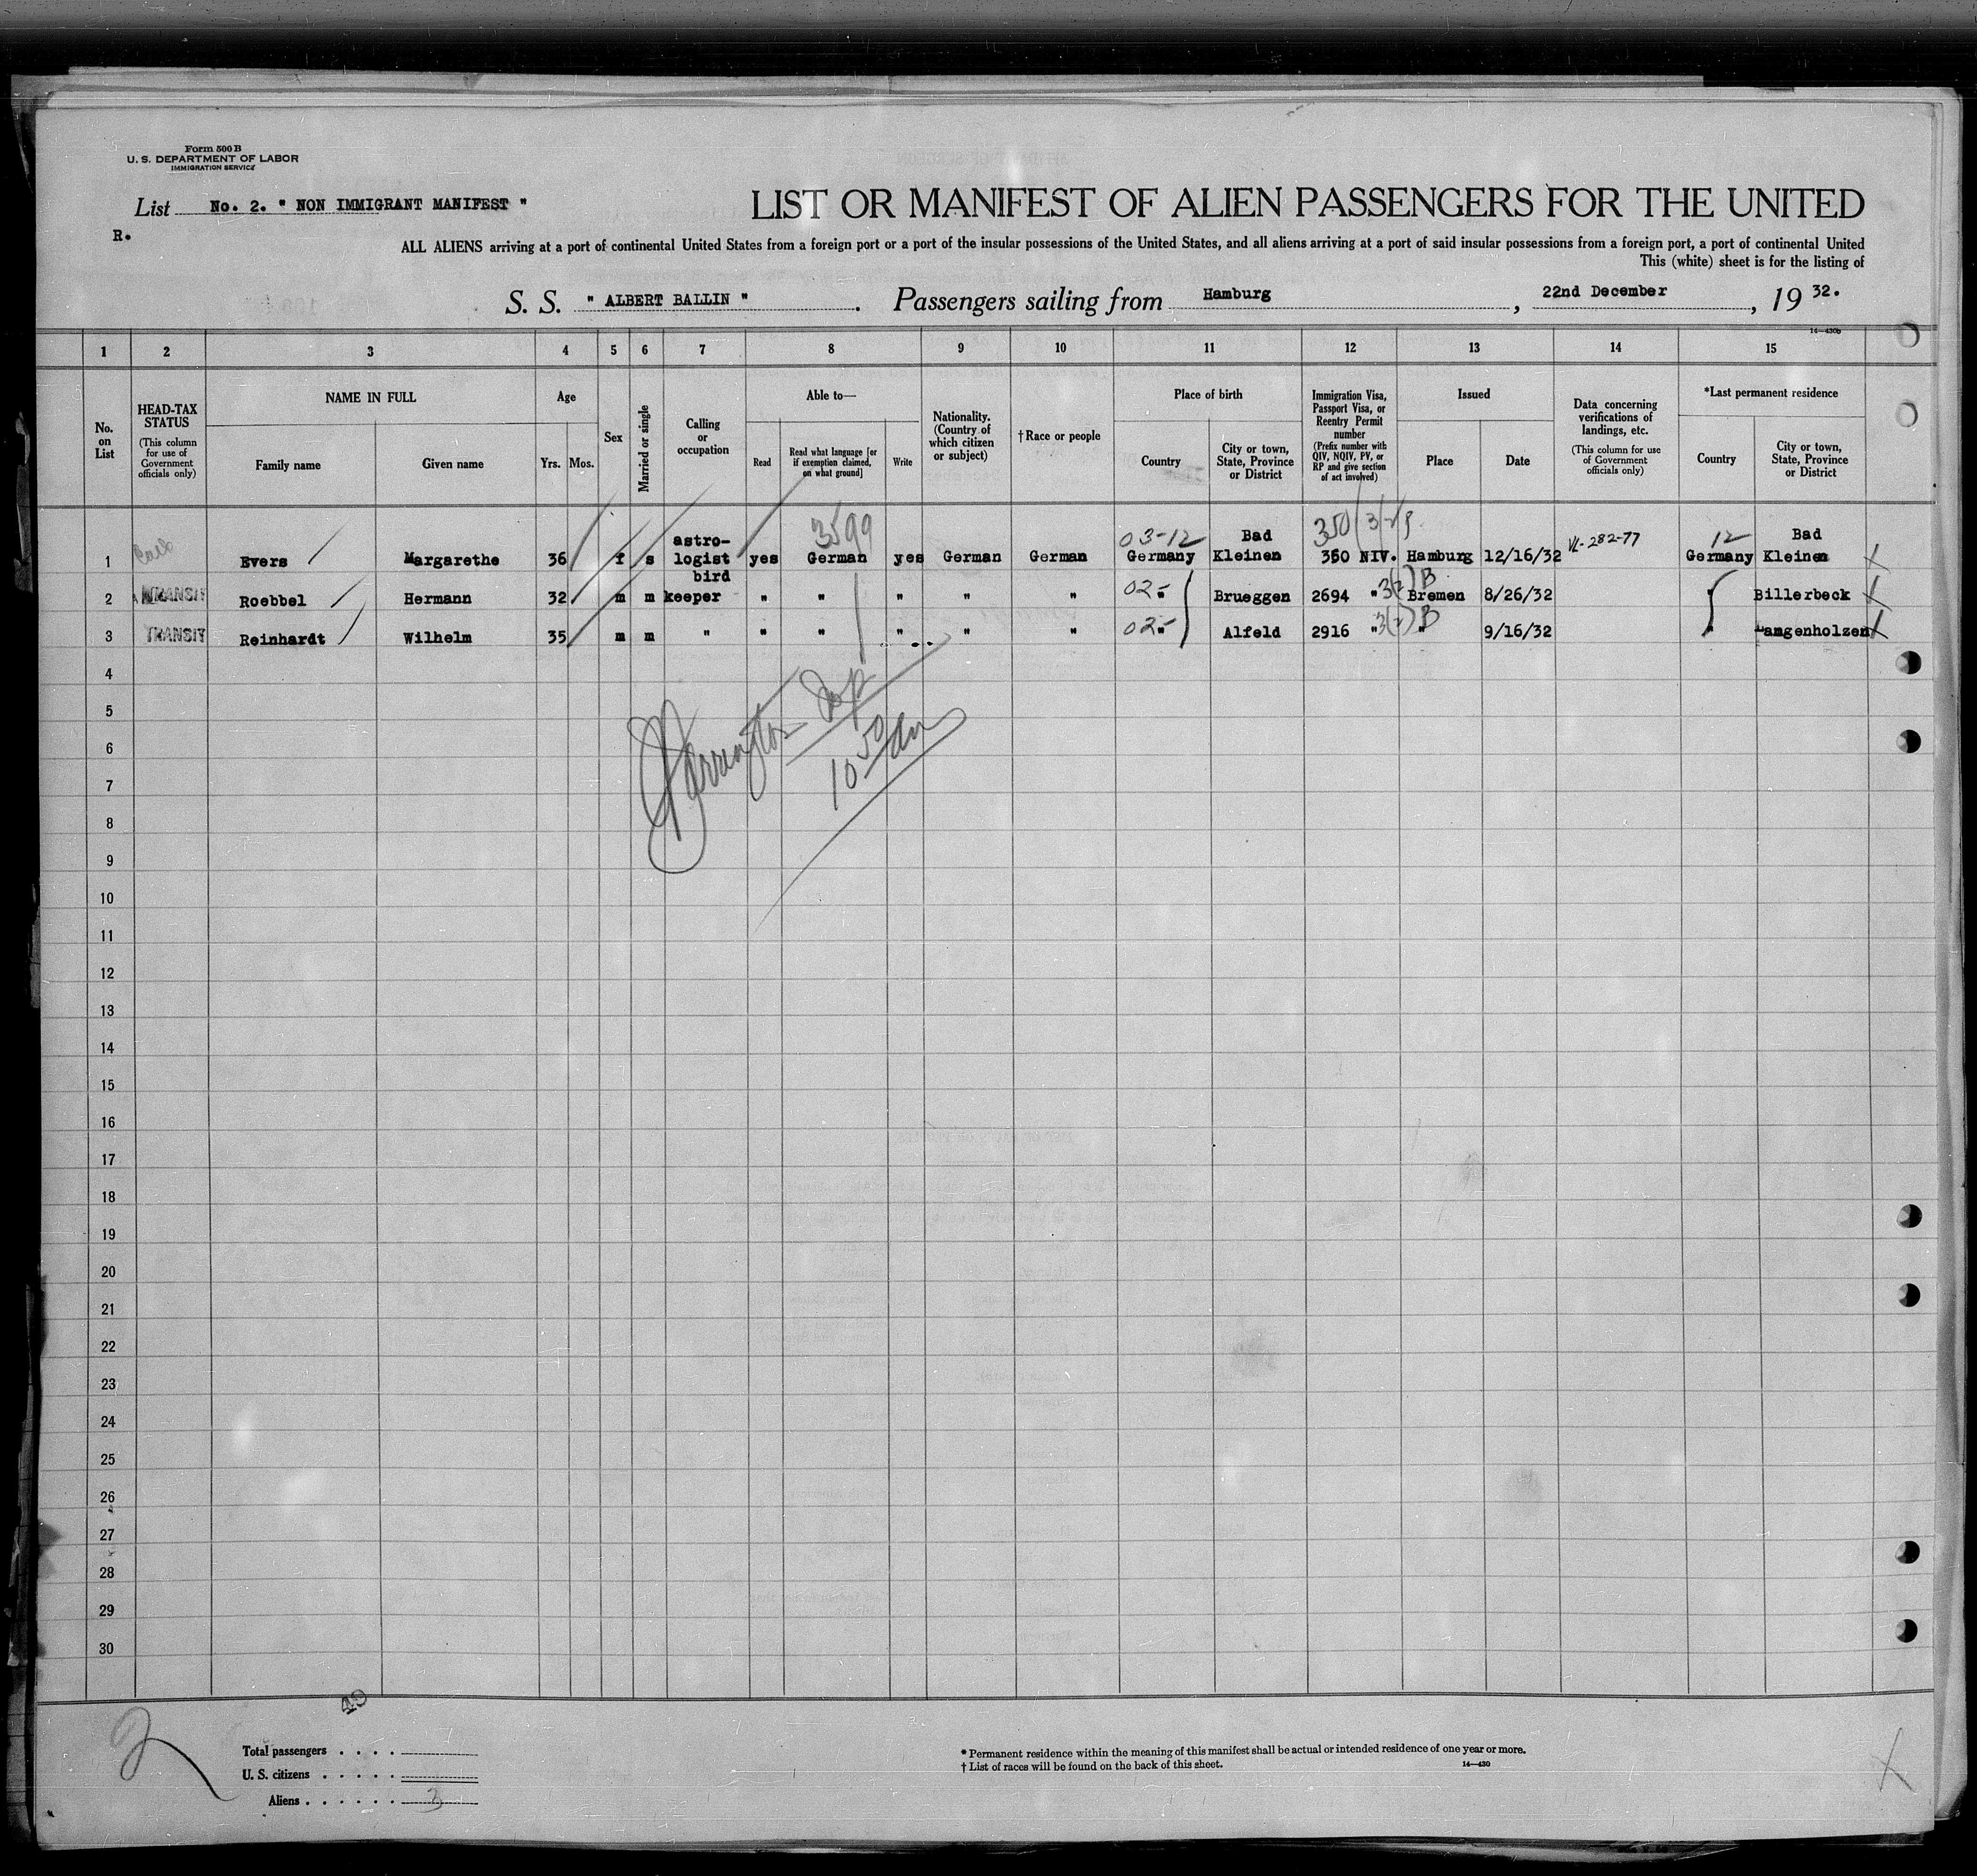 Form 500 B
U. S. DEPARTMENT OF LABOR
IMMIGRATION SERVICE
List No. 2. " NON IMMIGRANT MANIFEST "
R.
LIST OR MANIFEST OF ALIEN PASSENGERS FOR THE UNITED
ALL ALIENS arriving at a port of continental United States from a foreign port or a port of the insular possessions of the United States, and all aliens arriving at a port of said insular possessions from a foreign port, a port of continental United
This (white) sheet is for the listing of
S. S. " ALBERT BALLIN ". Passengers sailing from Hamburg, 22nd December, 19 32.
14—430b
1 2 3 4 5 6 7 8 9 10 11 12 13 14 15
No. on List
HEAD-TAX STATUS
(This column for use of Government officials only)
NAME IN FULL
Family name Given name
Age
Yrs. Mos.
Sex
Married or single
Calling or occupation
Able to—
Read
Read what language [or if exemption claimed, on what ground]
Write
Nationality. (Country of which citizen or subject)
†Race or people
Place of birth
Country
City or town, State, Province or District
Immigration Visa, Passport Visa, or Reentry Permit number
(Prefix number with QIV, NQIV, PV, or RP and give section of act involved)
Issued
Place Date
Data concerning verifications of landings, etc.
(This column for use of Government officials only)
*Last permanent residence
Country
City or town, State, Province or District
3599
03-12
350
VL-282-77
12
1 Evers Margarethe 36 f s astro-logist yes German yes German German Germany Bad Kleinen 350 NIV. Hamburg 12/16/32 Germany Bad Kleinen X
2 TRANSIT Roebbel Hermann 32 m m bird keeper " " " " " 02- " Brueggen 2694 " 3(2) B Bremen 8/26/32 " Billerbeck X
3 TRANSIT Reinhardt Wilhelm 35 m m " " " " " " 02- " Alfeld 2916 " 3(2) B " 9/16/32 " Langenholzen X
4
5
6
7
8
9
10
11
12
13
14
15
16
17
18
19
20
21
22
23
24
25
26
27
28
29
30
10 50 am
2
40
Total passengers . . . .
U. S. citizens . . . . .
Aliens . . . . . . 3
* Permanent residence within the meaning of this manifest shall be actual or intended residence of one year or more.
† List of races will be found on the back of this sheet.
14—430
X